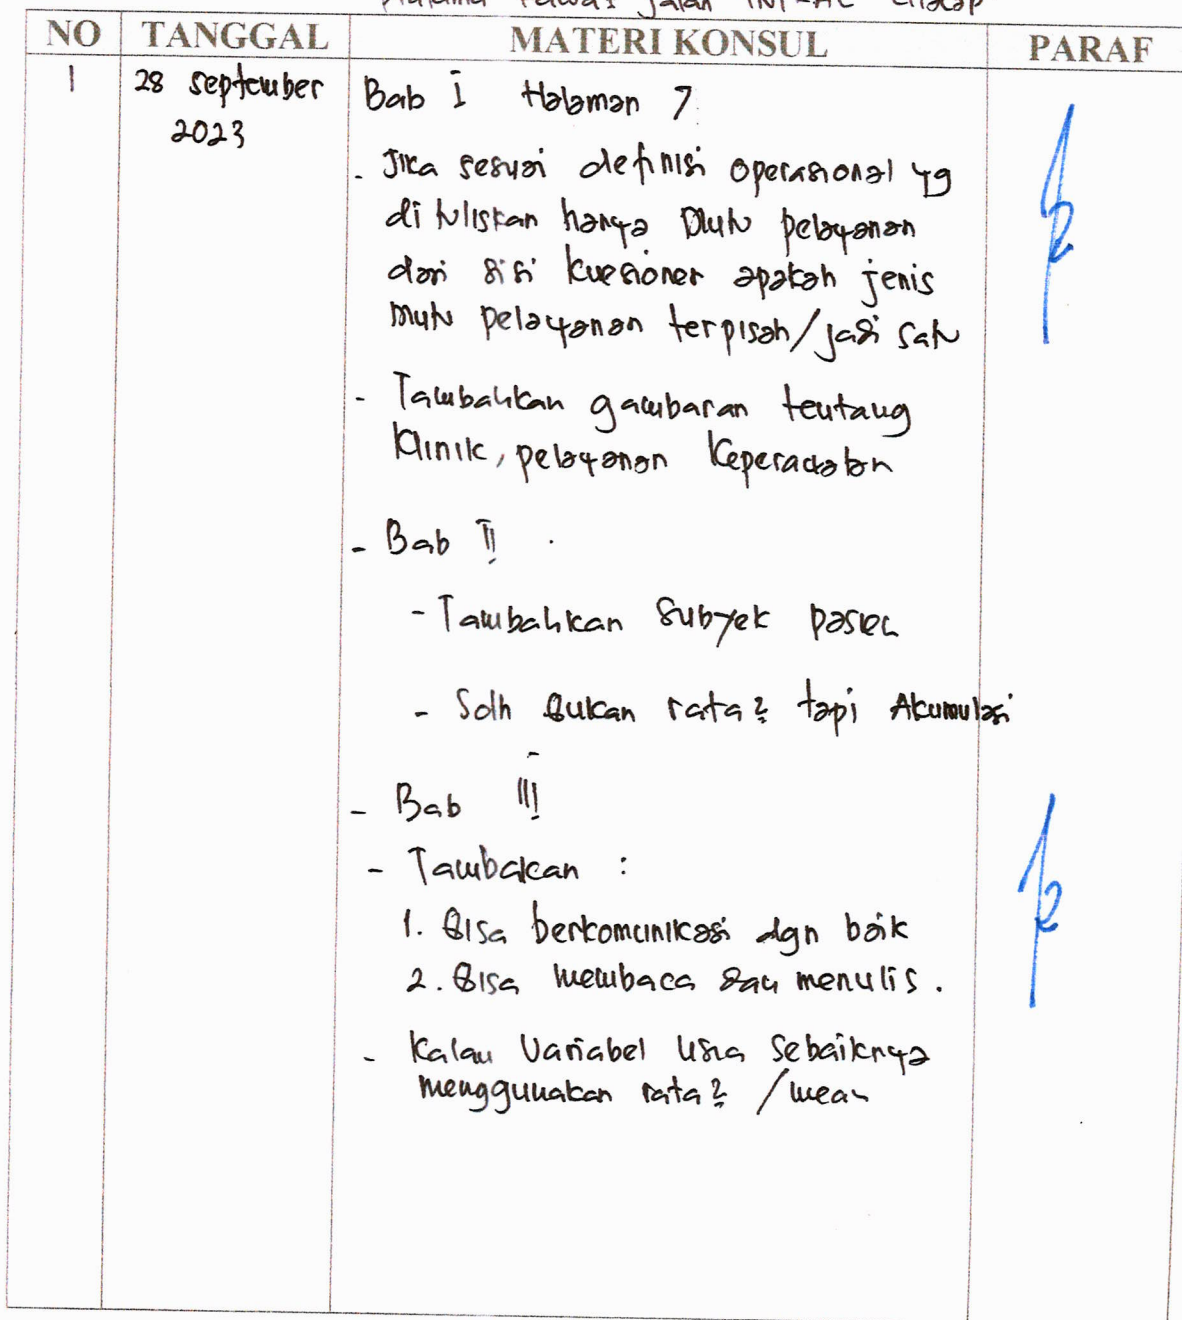 Rawat Jalan TNI-AL Cilacap
NO TANGGAL MATERI KONSUL PARAF
1 28 September Bab I Halaman 7
2023
- Jika sesuai definisi operasional yg
di tuliskan hanya Mutu pelayanan
dari sisi kuesioner apakah jenis
mutu pelayanan terpisah/jadi satu
- Tambahkan gambaran tentang
klinik, pelayanan keperawatan
- Bab II
- Tambahkan Subyek pasien
- Sdh Bukan rata2 tapi Akumulasi
- Bab III
- Tambakan :
1. Bisa berkomunikasi dgn baik
2. Bisa membaca dan menulis.
- Kalau Variabel Usia Sebaiknya
menggunakan rata2 / mean